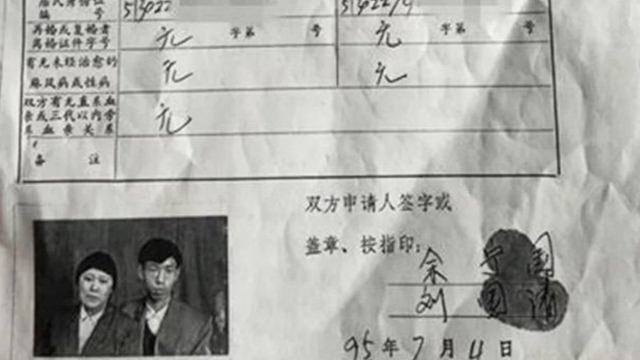 居民身份证
编 号 513022 513022
再婚或复婚者
离婚证件字号 无 字第 号 无 字第 号
有无未经治愈的
麻风病或性病 无 无
双方有无直系血
亲或三代以内旁
系血亲关系 无
备 注
双方申请人签字或
盖章、按指印:
余 国
刘国清
95年7月11日